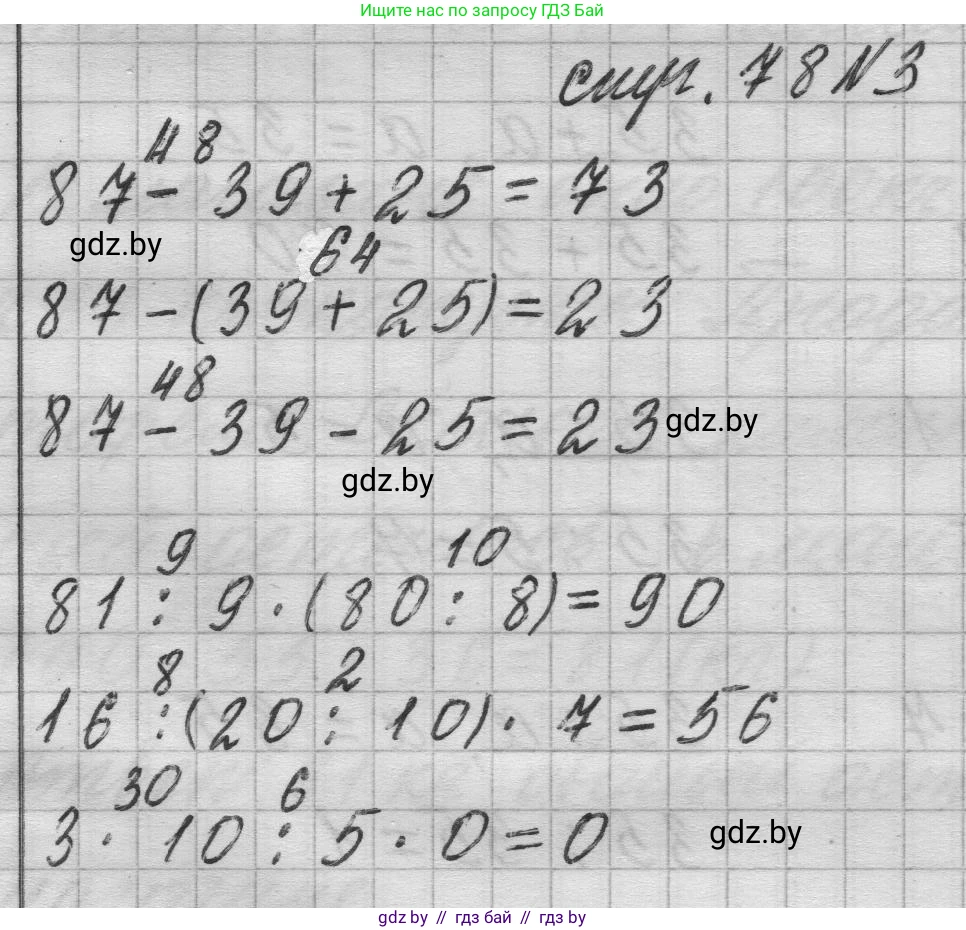 Ищите нас по запросу ГДЗ Бай
стр. 78 N 3
48
87 - 39 + 25 = 73
gdz.by
64
87 - (39 + 25) = 23
48
87 - 39 - 25 = 23
gdz.by
gdz.by
9 10
81 : 9 · (80 : 8) = 90
8 2
16 : (20 : 10) · 7 = 56
30 6
3 · 10 : 5 · 0 = 0
gdz.by
gdz by // гдз бай // гдз by